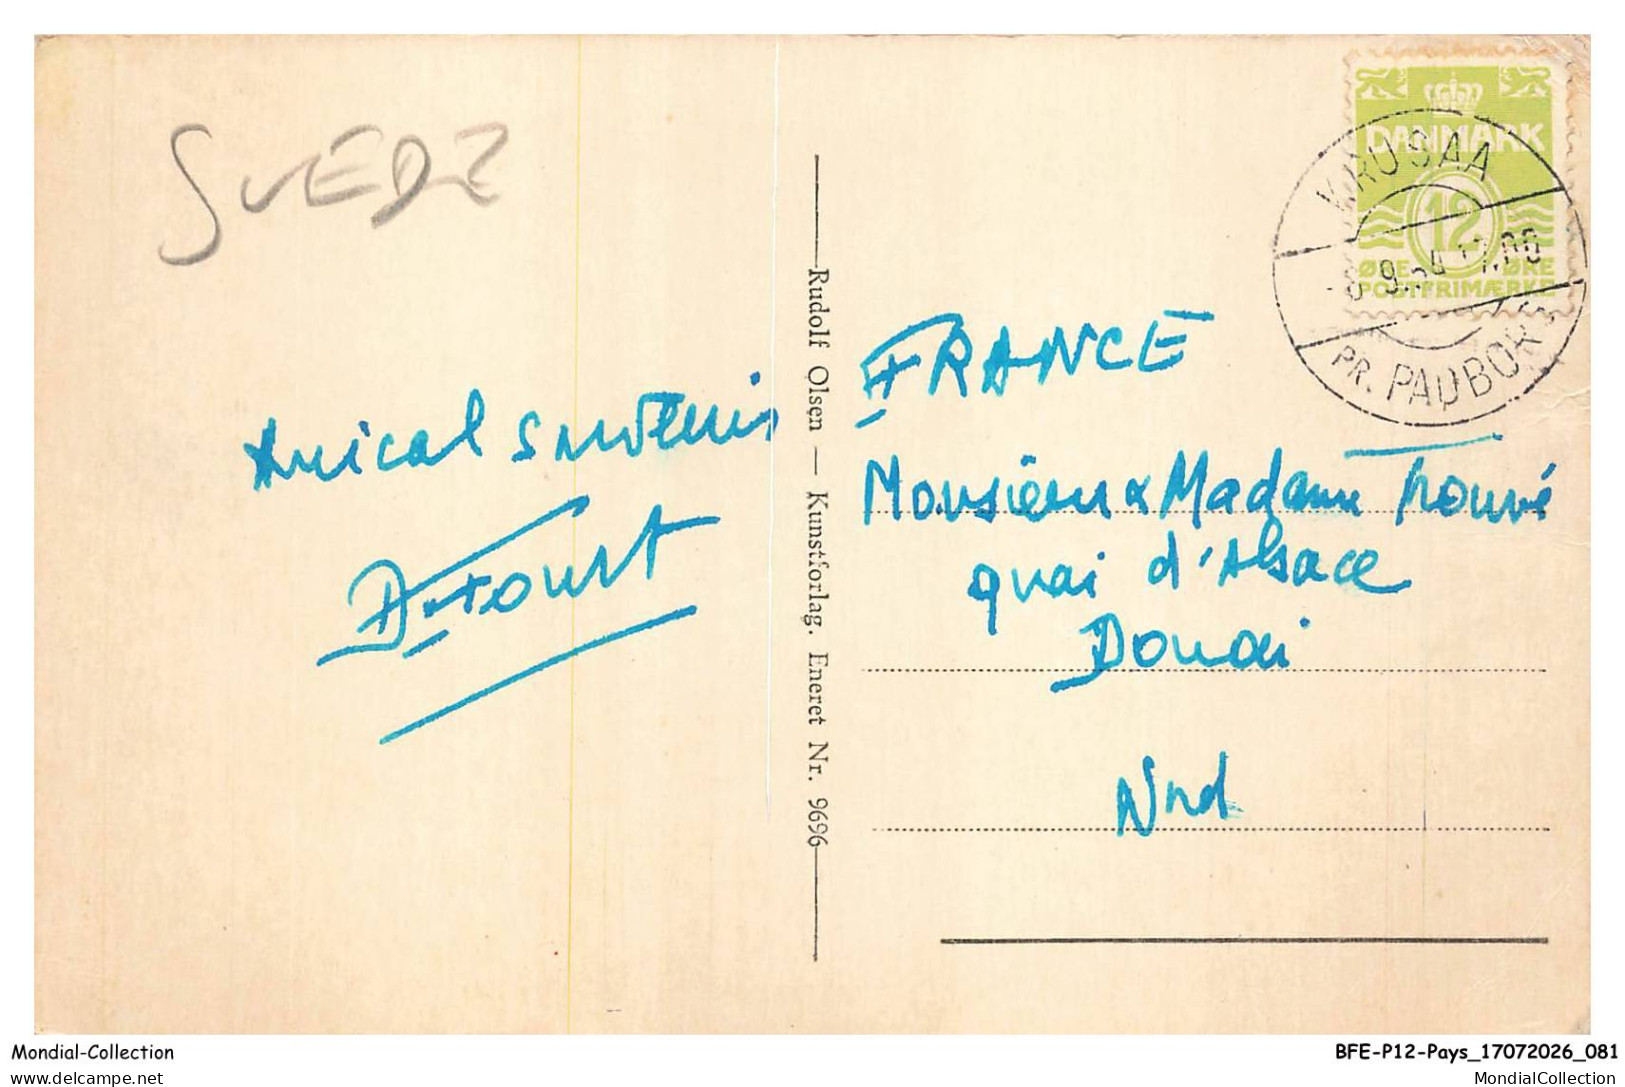 SUEDE
DANMARK
12
ØRE ØRE
POSTFRIMÆRKE
KRUSAA
PR. PADBORG
Rudolf Olsen — Kunstforlag. Eneret Nr. 9696
Amical souvenir
FRANCE
Monsieur & Madame Trouvé
quai d'Alsace
Douai
Nord
Mondial-Collection
BFE-P12-Pays_17072026_081
delcampe.net
MondialCollection